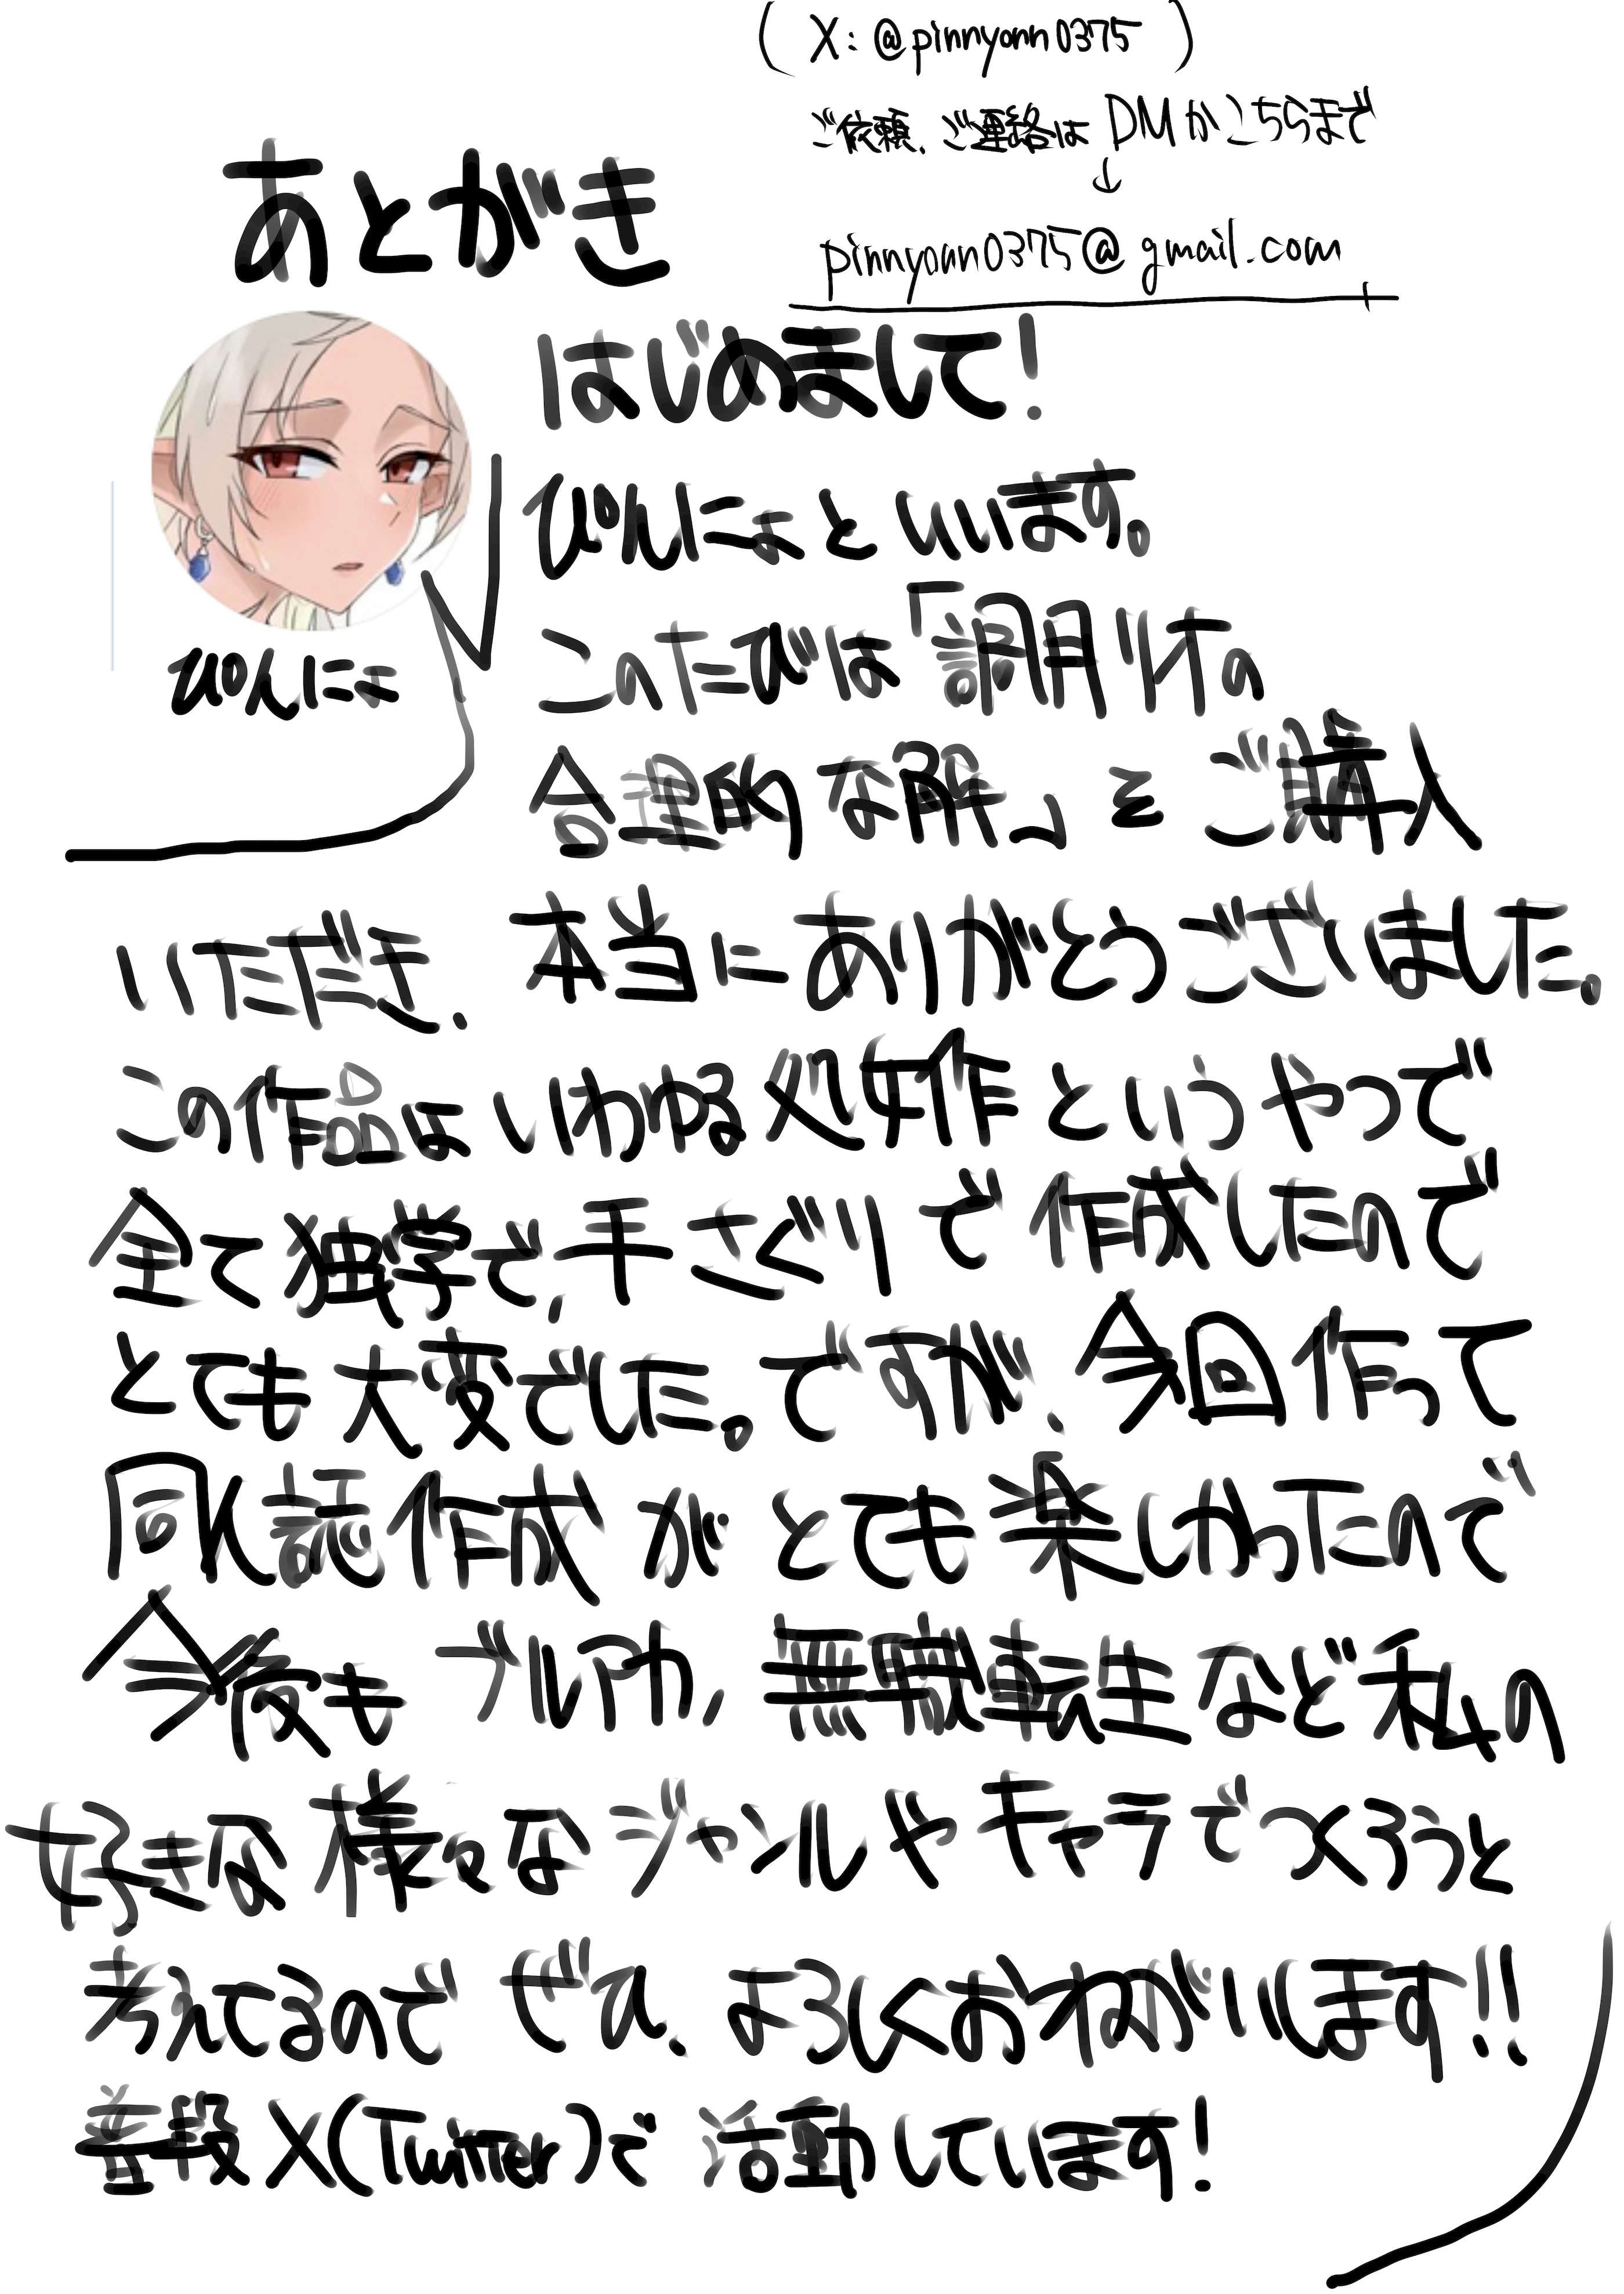 ( X: @pinnyonn0375 )
ご依頼、ご連絡は DMかこちらまで
↓
pinnyonn0375@gmail.com
あとがき
はじめまして!
ぴんにょといいます。
ぴんにょ
このたびは「調月リオの
合理的な解」をご購入
いただき、本当にありがとうございました。
この作品はいわゆる処女作というやつで
全て独学で、手さぐりで作成したので
とても大変でした。ですが、今回作って
同人誌作成がとても楽しかったので
今後もブルアカ、無職転生など私の
好きな様々なジャンルやキャラでつくろうと
考えてるのでぜひ、よろしくおねがいします!!
普段X(Twitter)で活動しています!